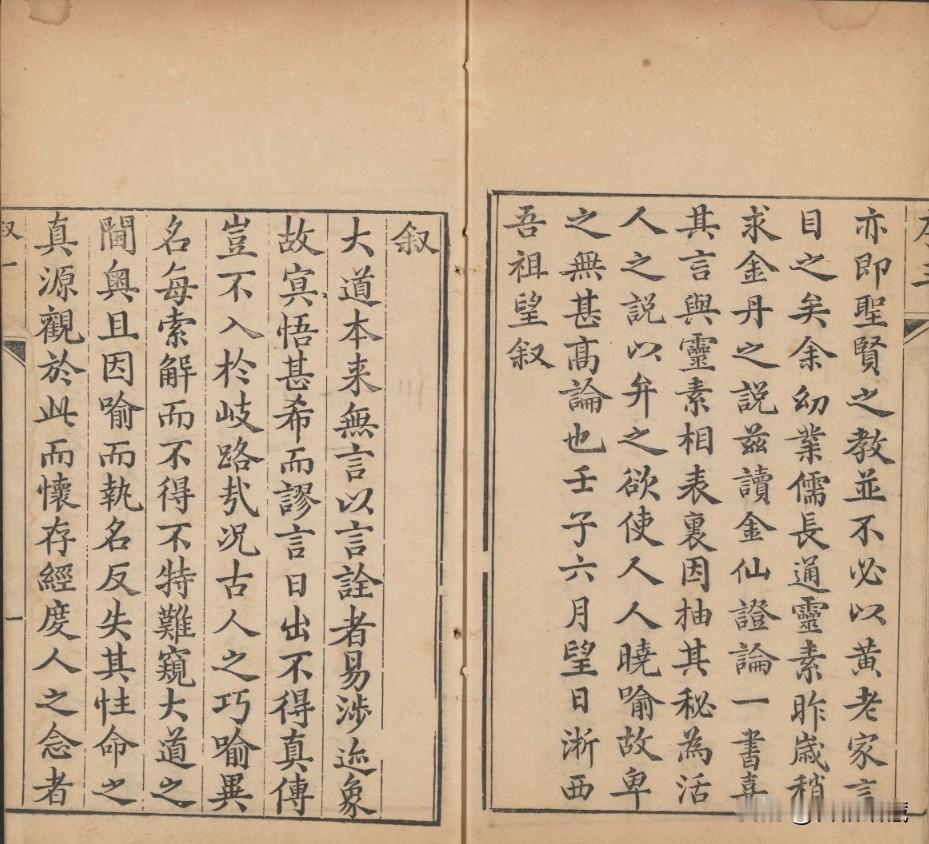 序三
亦即聖賢之教並不必以黄老家言
目之矣余幼業儒長通靈素昨歲稍
求金丹之説兹讀金仙證論一書喜
其言與靈素相表裏因抽其秘為活
人之説以弁之欲使人人曉喻故卑
之無甚髙論也壬子六月望日淅西
吾祖望叙
叙
大道本来無言以言詮者易涉迹象
故冥悟甚希而謬言日出不得真傳
豈不入於岐路㢤况古人之巧喻異
名每索解而不得不特難窺大道之
閫奥且因喻而執名反失其性命之
真源觀於此而懷存經度人之念者
叙一
一